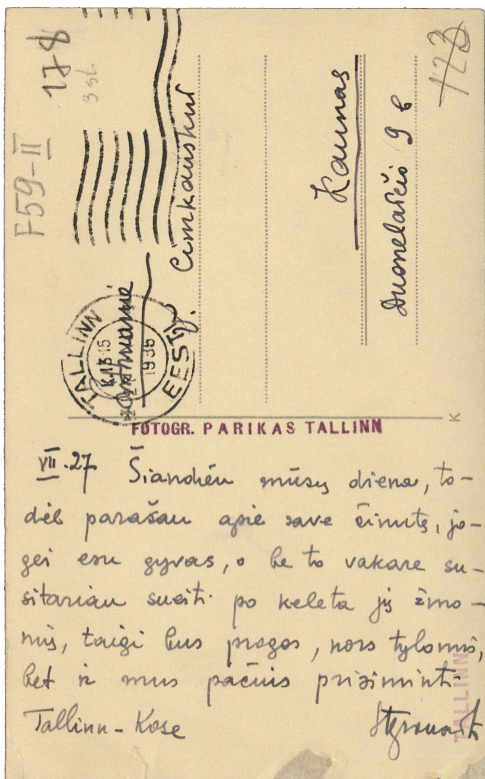 F59-II
178
3 sk.
TALLINN
1936
EESTI
p. Cimkauskui
Kaunas
Duonelaičio 9 b
123
FOTOGR. PARIKAS TALLINN
K
VII.27 Šiandien mūsų diena, to-
dėl parašau apie save žinutę, jo-
gei esu gyvas, o be to vakare su-
sitariau sueiti po keleta jų žmo-
nių, taigi bus progos, nors tylomis,
bet ir mus pačius prisiminti.
Tallinn-Kose
TALLINN